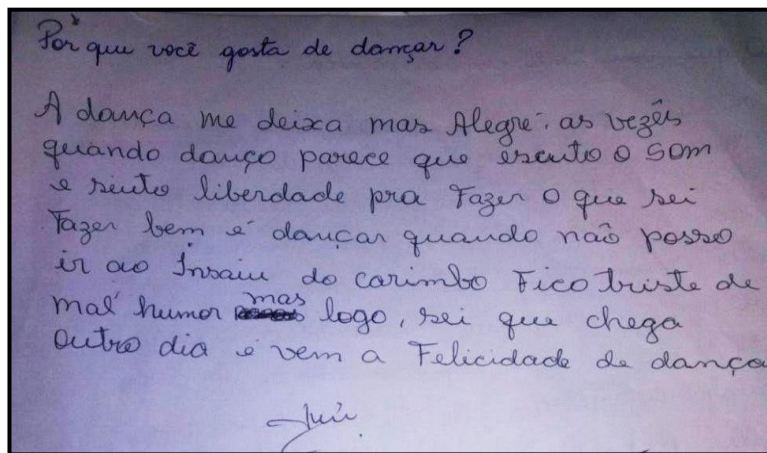 Por que você gosta de dançar?
A dança me deixa mas Alegre. as vezês
quando danço parece que escuto o som
e sinto liberdade pra Fazer o que sei
Fazer bem é dançar quando não posso
ir ao Insaiu do carimbo Fico triste de
mal humor mas logo, sei que chega
Outro dia e vem a Felicidade de dança